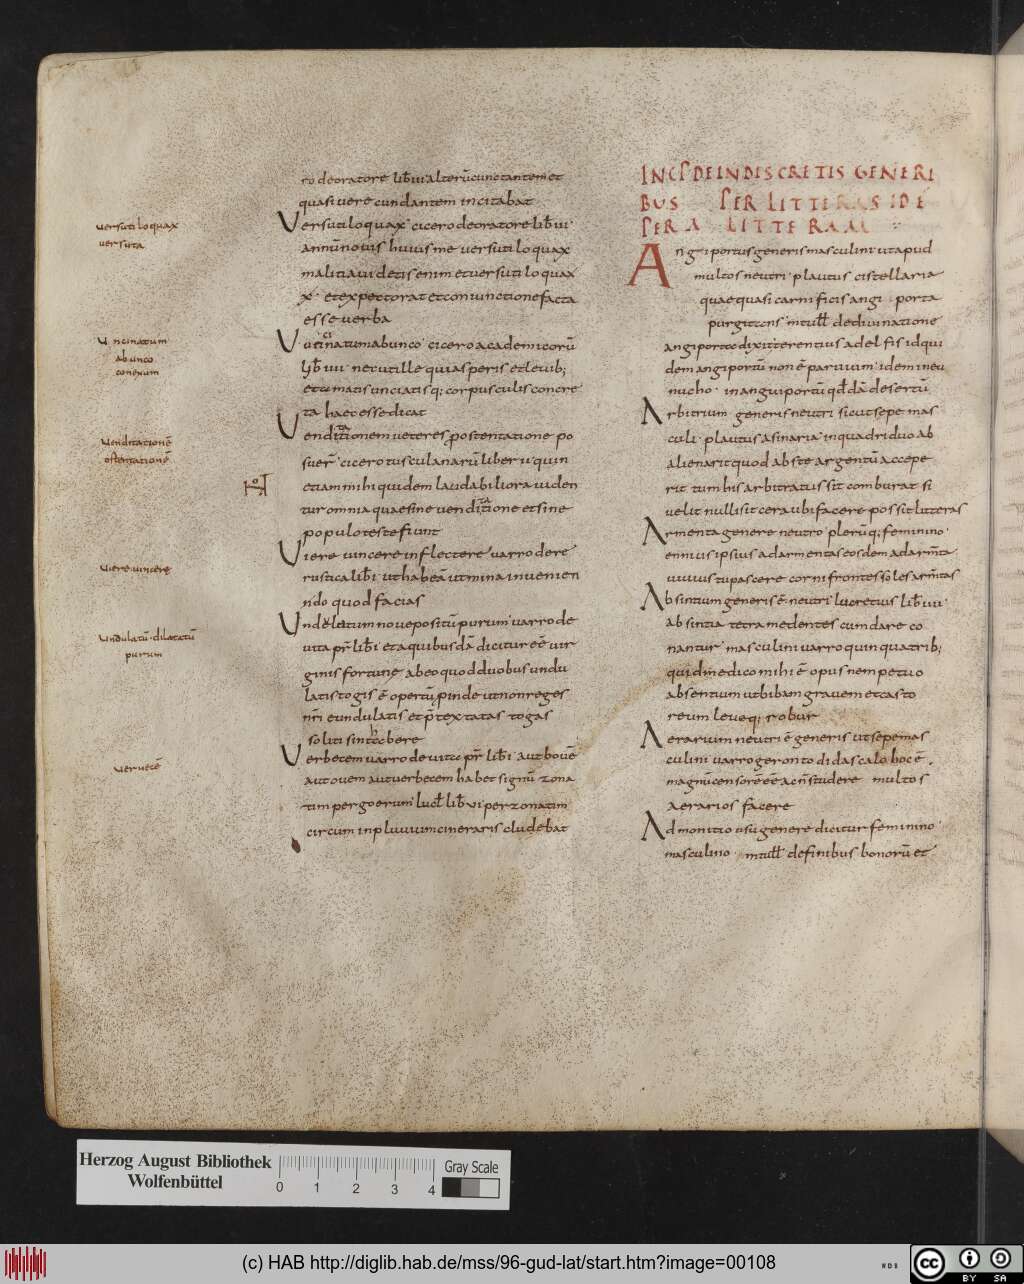 ro deoratore lib̄ iii alterū cunctantem et
quasi vere cunctantem incitabat
Versutiloquax cicero deoratore lib̄ iii
annū novis huiusme versutiloquax
malitia videtis enim et versutiloquax
x et expectorat et coniunctione facta
esse verba
Vncinatum abunco cicero academicorū
lib̄ iiii nec ut ille qui asperis et levib;
et hamatis uncinatisq; corpusculis concre
ta haec esse dicat
Venditationem veteres pro ostentatione po
suer̄ cicero tusculanarū liber ii quin
etiam mihi quidem laudabiliora viden
tur omnia quae sine venditatione et sine
populo teste fiunt
Viere vincere inflectere varro de re
rustica lib̄ i ut habeā vitmina invenien
ndo quod facias
Vndulatum nove positū purum varro de
vita pr̄ lib̄ i et a quibusdā dicitur eē vir
ginis fortune ab eo quod duobus undu
latis togis ē opertū pinde ut non reges
nr̄i eundulatis et p̄textatas togas
soliti sint bere
Verbecem varro de vita pr̄ lib̄ i aut bovē
aut ovem aut verbecem habet signū zona
tim pergoerum lucl̄ lib̄ vi perzonatim
circum inpluvium cineraris cludebat
versutiloquax
versuta
Vncinatum
abunco
conexum
Venditationē
ostentationē
Viere vincere
Vndulatū dilatatū
purum
Vervecē
INCP̄ DE INDISCRETIS GENERI
BUS PER LITTERAS IDE
PER A LITTERAM
Angiportus generis masculini ut apud
multos neutri plautus cistellaria
quae quasi carnificis angi porta
purgitans mtull̄ de divinatione
angiporto dixit terentius adelfis id qui
dem angiportū non ē parvium idem in eu
nucho in anguiportū qd̄dā desertū
Arbitrium generis neutri sicut sepe mas
culi plautus asinaria in quadriduo ab
alienarit quod abs te argentū accepe
rit tum his arbitratus sit comburat si
velit nullis sit cera ubi facere possit litteras
Armenta genere neutro plerūq; feminino
ennius ipsius ad armentas eosdem ad arm̄ta
vivius tu pascere corni frontes soles arm̄tas
Absintium generis ē neutri lucretius lib̄ iiii
absintia tetra medentes cum dare co
nantur masculini varro quinquatrib;
quid medico mihi ē opus nempe tuo
absentium ut bibam gravem et casto
reum leveq; robur
Aerarium neutri ē generis ut sepe mas
culini varro gerontodidascalo hoc ē
magnū censorē eē ac n̄ studere multos
aerarios facere
Admonitio usu genere dicitur feminino
masculino mtull̄ de finibus bonorū et
Herzog August Bibliothek
Wolfenbüttel
0 1 2 3 4
Gray Scale
(c) HAB http://diglib.hab.de/mss/96-gud-lat/start.htm?image=00108
WDB
cc BY SA